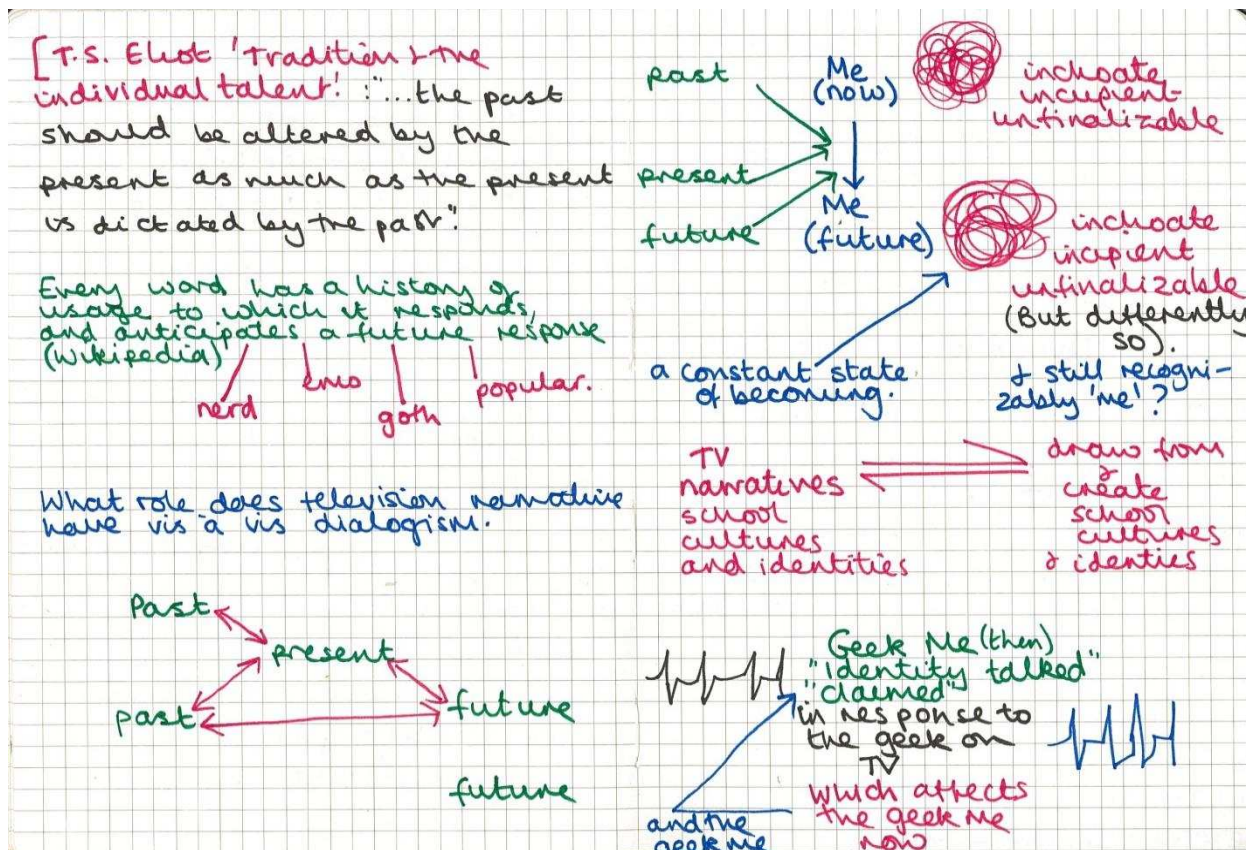 [T.S. Eliot 'Tradition & the
individual talent' : "...the past
should be altered by the
present as much as the present
is dictated by the past."
Every word has a history of
usage to which it responds,
and anticipates a future response
(Wikipedia)
nerd
emo
goth
popular.
What role does television narrative
have vis a vis dialogism.
Past
present
past
future
future
past
present
future
Me
(now)
Me
(future)
inchoate
incipient
unfinalizable
inchoate
incipient
unfinalizable
(But differently
so).
& still recogni-
zably 'me'?
a constant state
of becoming.
TV
narratives
school
cultures
and identities
draw from
&
create
school
cultures
& identies
Geek Me (then)
"identity talked"
"claimed"
in response to
the geek on
TV
which affects
the geek Me
now
and the
geek me